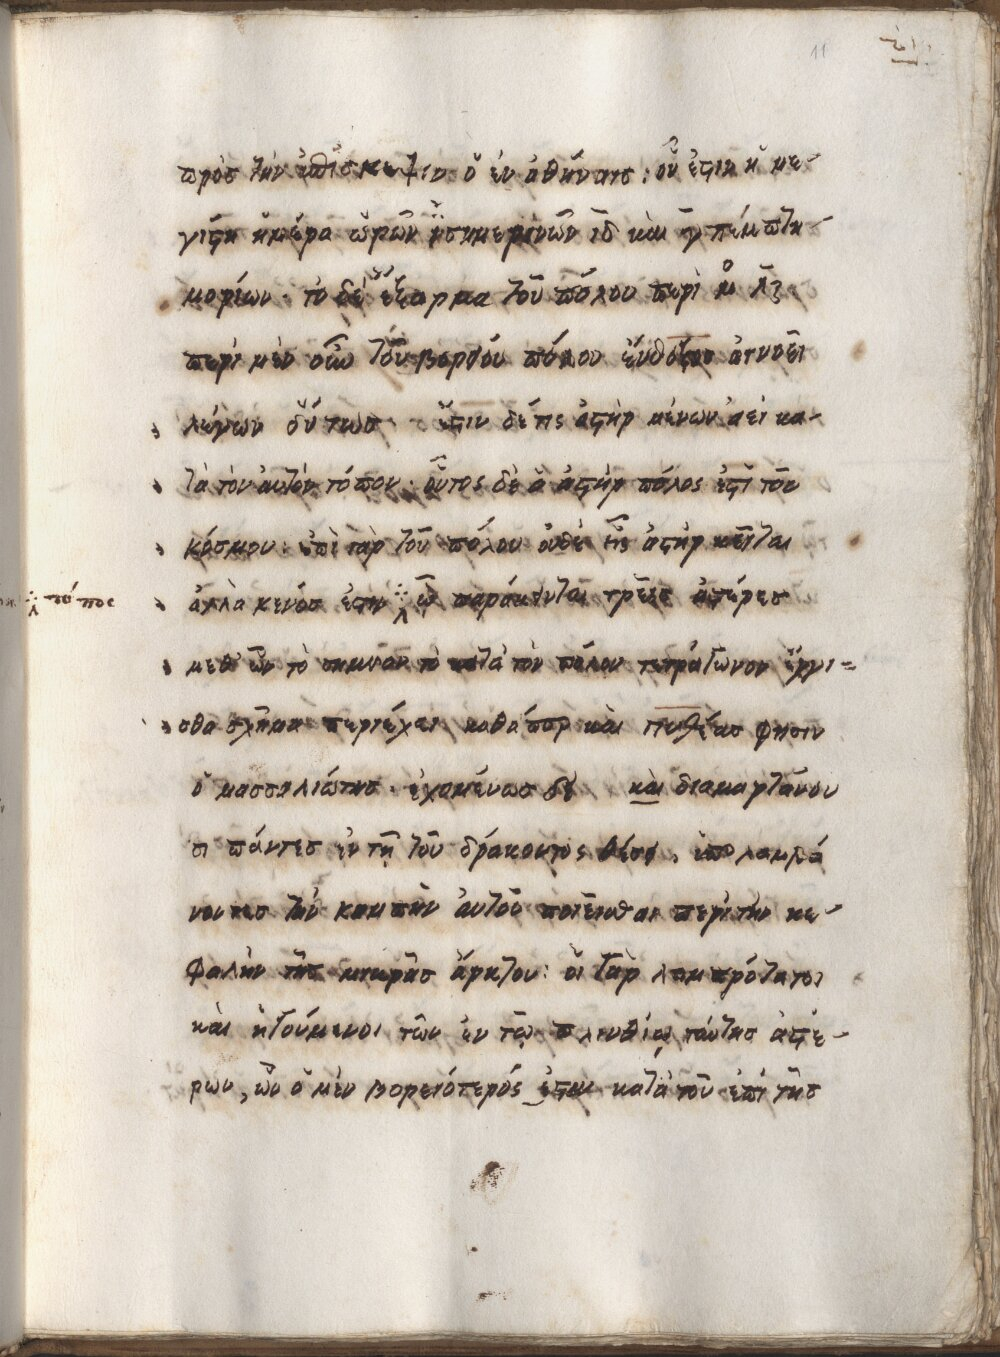 11
πρὸς τὴν ἐπίσκεψιν ὁ ἐν ἀθήναις· οὗ ἐστιν ἡ με-
γίστη ἡμέρα ὡρῶν ἰσημερινῶν ιδ καὶ γ πέμπτη
μορίων· τὸ δὲ ἔξαρμα τοῦ πόλου περὶ μ̊ λζ
περὶ μὲν οὖν τοῦ βορείου πόλου εὔδοξος ἀγνοεῖ
λέγων οὕτως ἔστιν δέ τις ἀστὴρ μένων ἀεὶ κα-
τὰ τὸν αὐτὸν τόπον· οὗτος δὲ ὁ ἀστὴρ πόλος ἐστὶ τοῦ
κόσμου· ἐπὶ γὰρ τοῦ πόλου οὐδὲ εἷς ἀστὴρ κεῖται
ἀλλὰ κενός ἐστιν ᾧ παράκεινται τρεῖς ἀστέρες
τόπος
μεθ' ὧν τὸ σημεῖον τὸ κατὰ τὸν πόλον τετράγωνον ἔγγι-
σθα σχῆμα περιέχει καθάπερ καὶ πυθέας φησὶν
ὁ μασσαλιώτης· ἐχομένως δὲ καὶ διαμαρτάνου
σι πάντες ἐν τῇ τοῦ δράκοντος θέσει, ὑπολαμβά
νοντες τὴν καμπὴν αὐτοῦ ποιεῖσθαι περὶ τὴν κε-
φαλὴν τῆς μικρᾶς ἄρκτου: οἱ γὰρ λαμπρότατοι
καὶ ἡγούμενοι τῶν ἐν τῷ πλινθίῳ ταύτης ἀστέ-
ρων, ὧν ὁ μὲν βορειότερός ἐστιν κατὰ τοῦ ἐπὶ τῆς